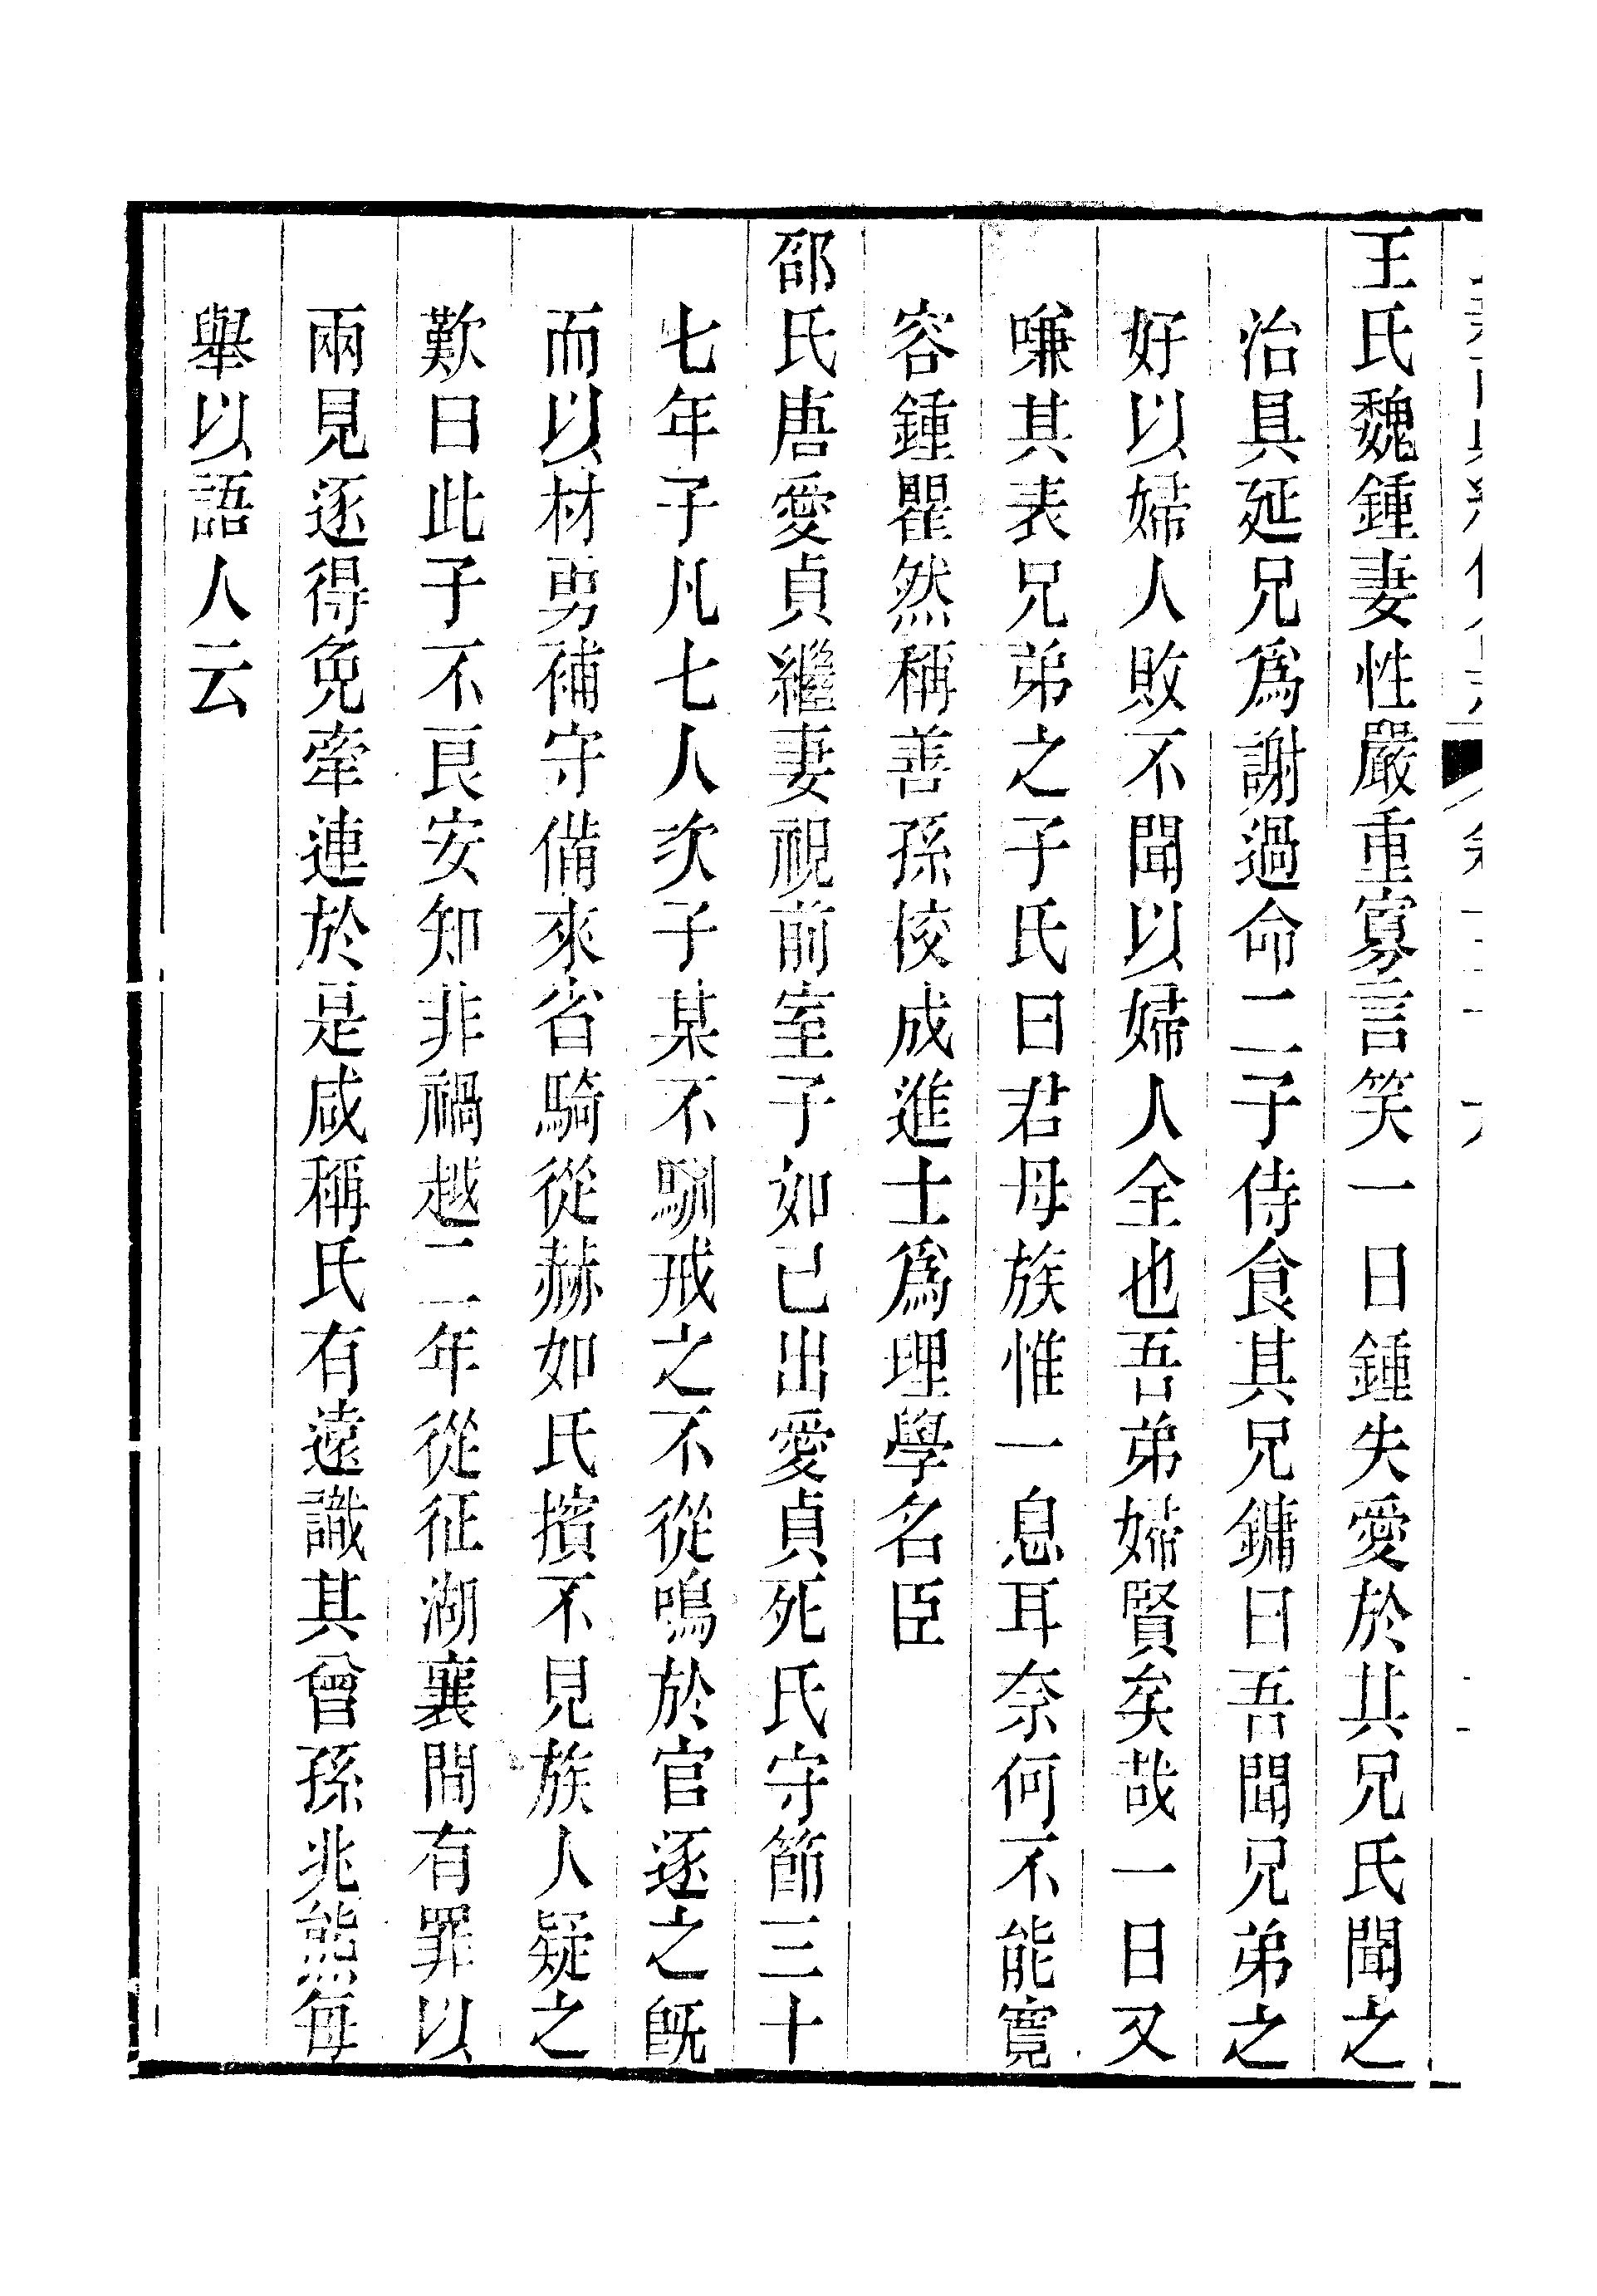 王氏魏鍾妻性嚴重寡言笑一日鍾失愛於其兄氏聞之
治具延兄爲謝過命二子侍食其兄鏞曰吾聞兄弟之
好以婦人敗不聞以婦人全也吾弟婦賢矣哉一日又
嗛其表兄弟之子氏曰君母族惟一息耳奈何不能寬
容鍾瞿然稱善孫校成進士爲理學名臣
邵氏唐愛貞繼妻視前室子如己出愛貞死氏守節三十
七年子凡七人次子某不馴戒之不從鳴於官逐之旣
而以材勇補守備來省騎從赫如氏擯不見族人疑之
歎曰此子不良安知非禍越二年從征湖襄間有罪以
兩見逐得免牽連於是咸稱氏有遠識其曾孫兆熊每
舉以語人云